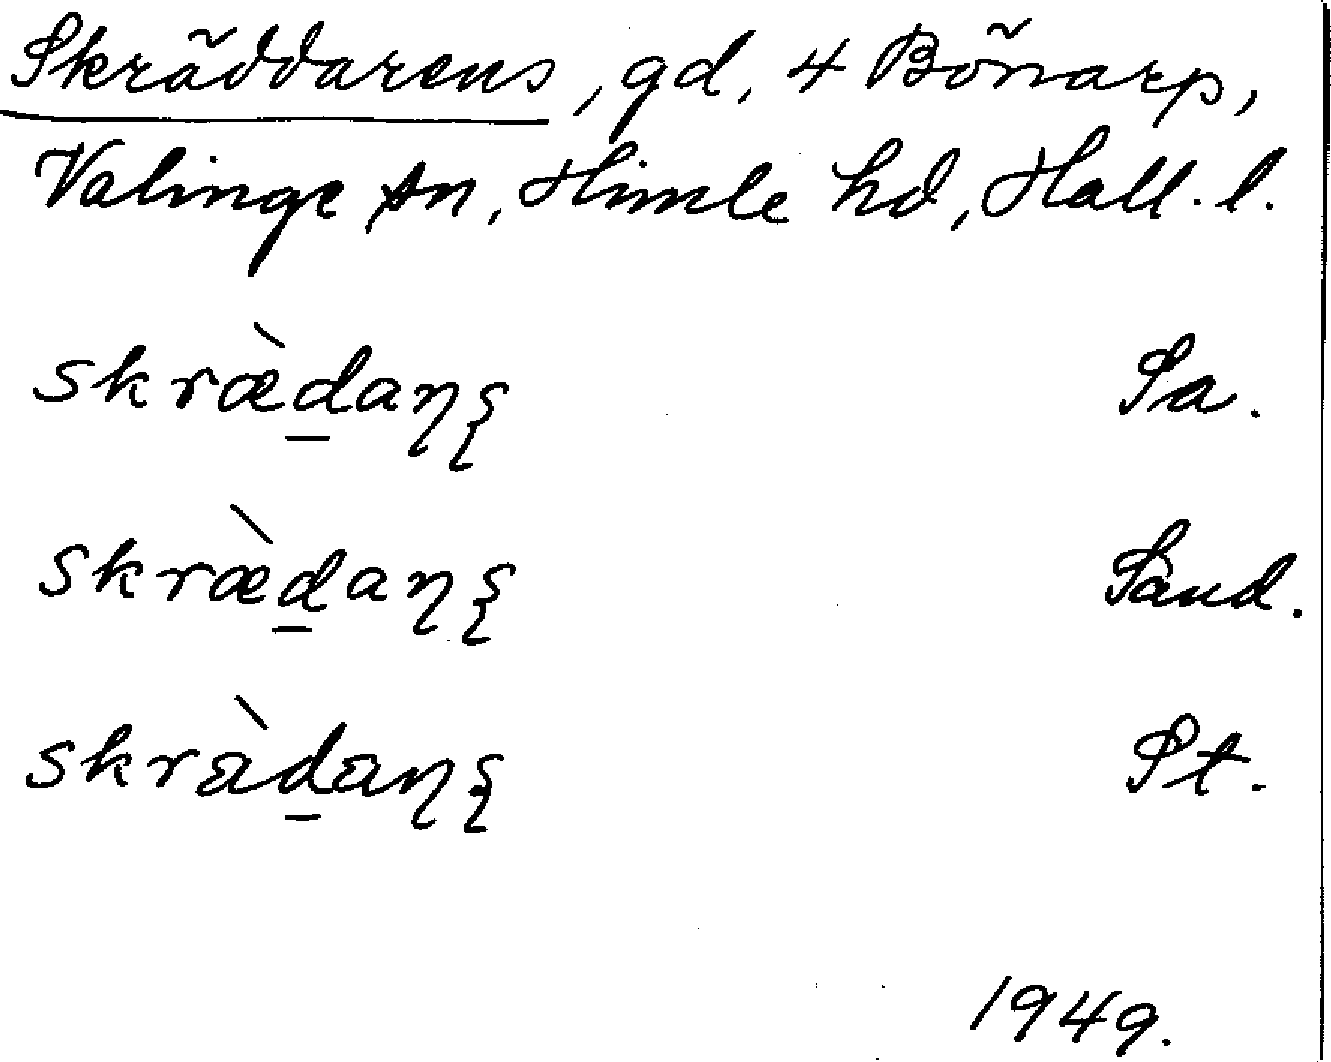 Skräddarens, gd, 4 Bönarp,
Valinge sn, Himle hd, Hall. l.
skræ̀d̲aꞃȿ Sa.
skræ̀d̲aꞃȿ Sand.
skràd̲aꞃȿ St.
1949.